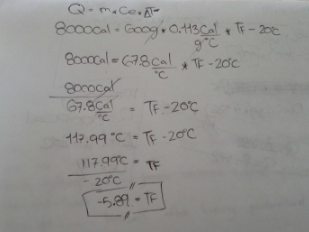 Q = m * Ce * ΔT
8000Cal = 600g * 0.113 Cal/g°C * TF - 20°C
8000Cal = 67.8 Cal/°C * TF - 20°C
8000Cal / 67.8 Cal/°C = TF - 20°C
117.99°C = TF - 20°C
117.99°C / -20°C = TF
-5.89 = TF